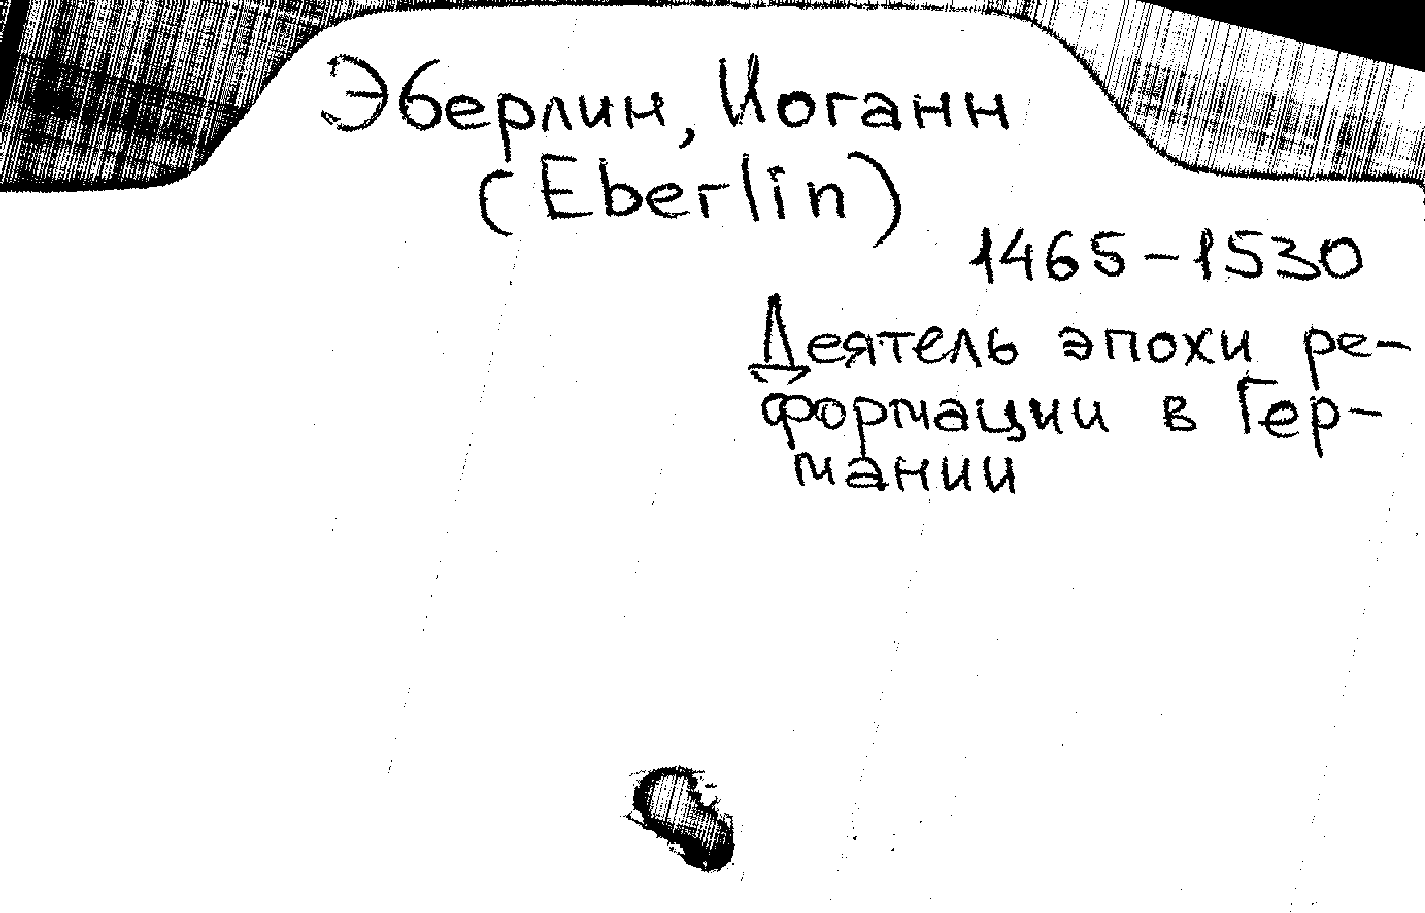 Эберлин, Иоганн
(Eberlin)
1465-1530
Деятель эпохи ре-
формации в Гер-
мании